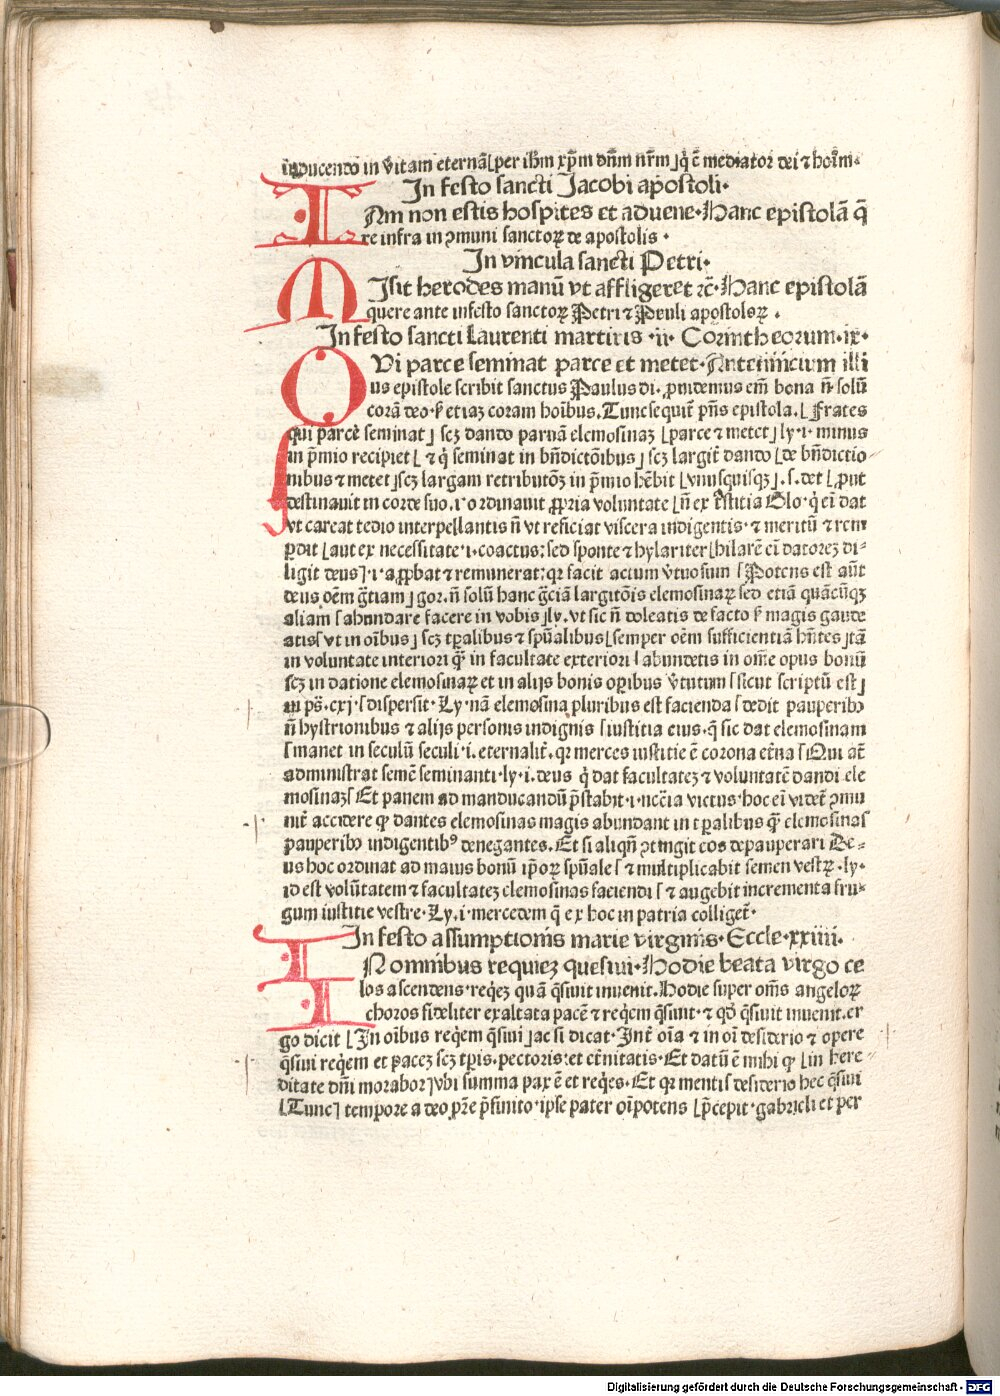 inducendo in vitam eternā⌊per ihm̄ xpm̄ dnm̄ nrm̄ ⌋q̇ ē mediator dei ⁊ hoīm·
In festo sancti Jacobi apostoli·
IAm non estis hospites et aduene·Hanc epistolā q̄
re infra in ꝯmuni sanctoꝝ de apostolis ·
In vincula sancti Petri·
MIsit herodes manū vt affligeret ⁊c̄·Hanc epistolā
quere ante in festo sanctoꝝ Petri ⁊ Pauli apostoloꝝ .
In festo sancti Laurenti martiris ·ii· Corintheorum·ix·
QUi parce seminat parce et metet· illi
us epistole scribit sanctus Paulus di. ꝓuidemus em̄ bona n̄ solū
corā deo·ẜ etiaꝫ coram hoībus. Tunc sequit̄ pn̄s epistola.⌊Frates
qui parce seminat⌋ scꝫ dando paruā elemosinaꝫ ⌊parce ⁊ metet⌋ ly·i· minus
in p̄mio recipiet⌊ ⁊ q̇ seminat in bn̄dictōibus⌋ scꝫ largit̄ dando ⌊de bn̄dictio⸗
nibus ⁊ metet⌋scꝫ largam retributōꝫ in p̄mio hēbit ⌊vnusquisqꝫ⌋.s.det⌊ꝓut
destinauit in corde suo.i· ordinauit ꝓpria voluntate ⌊n̄ ex tristitia Glo·q̇ eī dat
vt careat tedio interpellantis n̄ vt reficiat viscera indigentis· ⁊ meritū ⁊ rem
ꝑdit⌊aut ex necessitate·i·coactus; sed sponte ⁊ hylariter⌊hilarē eī datoreꝫ di⸗
ligit deus⌋·i·aꝓbat ⁊ remunerat;qꝛ facit actum v̄tuosum ⌊Potens est aūt
deus oēm gr̄tiam⌋gor. n̄ solū hanc gr̄ciā largitōis elemosinaꝝ sed etiā quācūqꝫ
aliam ⌊abundare facere in vobis⌋ly. vt sic n̄ doleatis de facto ẜ magis gaude
atis⌊vt in oībus⌋ scꝫ tꝑalibus ⁊ spūalibus⌊semper oēm sufficientiā hn̄tes⌋tā
in voluntate interiori q̄ꝫ in facultate exteriori ⌊abundetis in om̄e opus bonū
scꝫ in datione elemosinaꝝ et in alijs bonis oꝑibus v̄tutum ⌊sicut scriptū est⌋
in ps̄.cxj·⌊dispersit·Ly·nā elemosina pluribus est facienda⌊dedit pauperibꝫ
n̄ hystrionibus ⁊ alijs personis indignis ⌊iustitia eius·q̄ sic dat elemosinam
⌊manet in seculū seculi·i.eternalit̄·qꝛ merces iustitie ē corona et̄na⌊Qui at̄
administrat semē seminanti·ly·i.deus q̇ dat facultateꝫ ⁊ voluntatē dandi ele
mosinaꝫ⌊Et panem ad manducandū p̄stabit·i·nccīa victus·hoc eī videt̄ ꝯmu
nit̄ accidere ꝙ dantes elemosinas magis abundant in tꝑalibus q̄ꝫ elemosinas
pauperibꝫ indigentibꝰ denegantes. Et si aliqn̄ ꝯtingit eos depauperari De⸗
us hoc ordinat ad maius bonū ip̄oꝝ spūale⌊⁊ multiplicabit semen vestꝝ·ly·
id est volūtatem ⁊ facultateꝫ elemosinas faciendi⌊⁊ augebit incrementa fru⸗
gum iustitie vestre·Ly.i·mercedem q̄ ex hoc in patria colliget̄·
In festo assumptionis marie virginis·Eccle·xxiiii.
IN omnibus requieꝫ quesiui·Hodie beata virgo ce
los ascendens·req̇eꝫ quā q̄siuit inuenit. Hodie super om̄s angeloꝝ
choros fideliter exaltata pacē ⁊ req̇em q̄siuit· ⁊ qd̄ q̄siuit inuenit.er
go dicit ⌊In oībus req̇em q̄siui⌋ac si dicat·Int̄ oīa ⁊ in oī desiderio ⁊ opere
q̄siui req̇em et paceꝫ scꝫ tꝑis·pectoris:et et̄nitatis·Et datū ē mihi ꝙ ⌊in here⸗
ditate dn̄i morabor⌋vbi summa pax ē et req̇es·Et qꝛ mentis desiderio hec q̄siui
⌊Tunc⌋ tempore a deo pr̄e p̄finito·ipse pater oīpotens ⌊p̄cepit·gabrieli et per
Digitalisierung gefördert durch die Deutsche Forschungsgemeinschaft - DFG